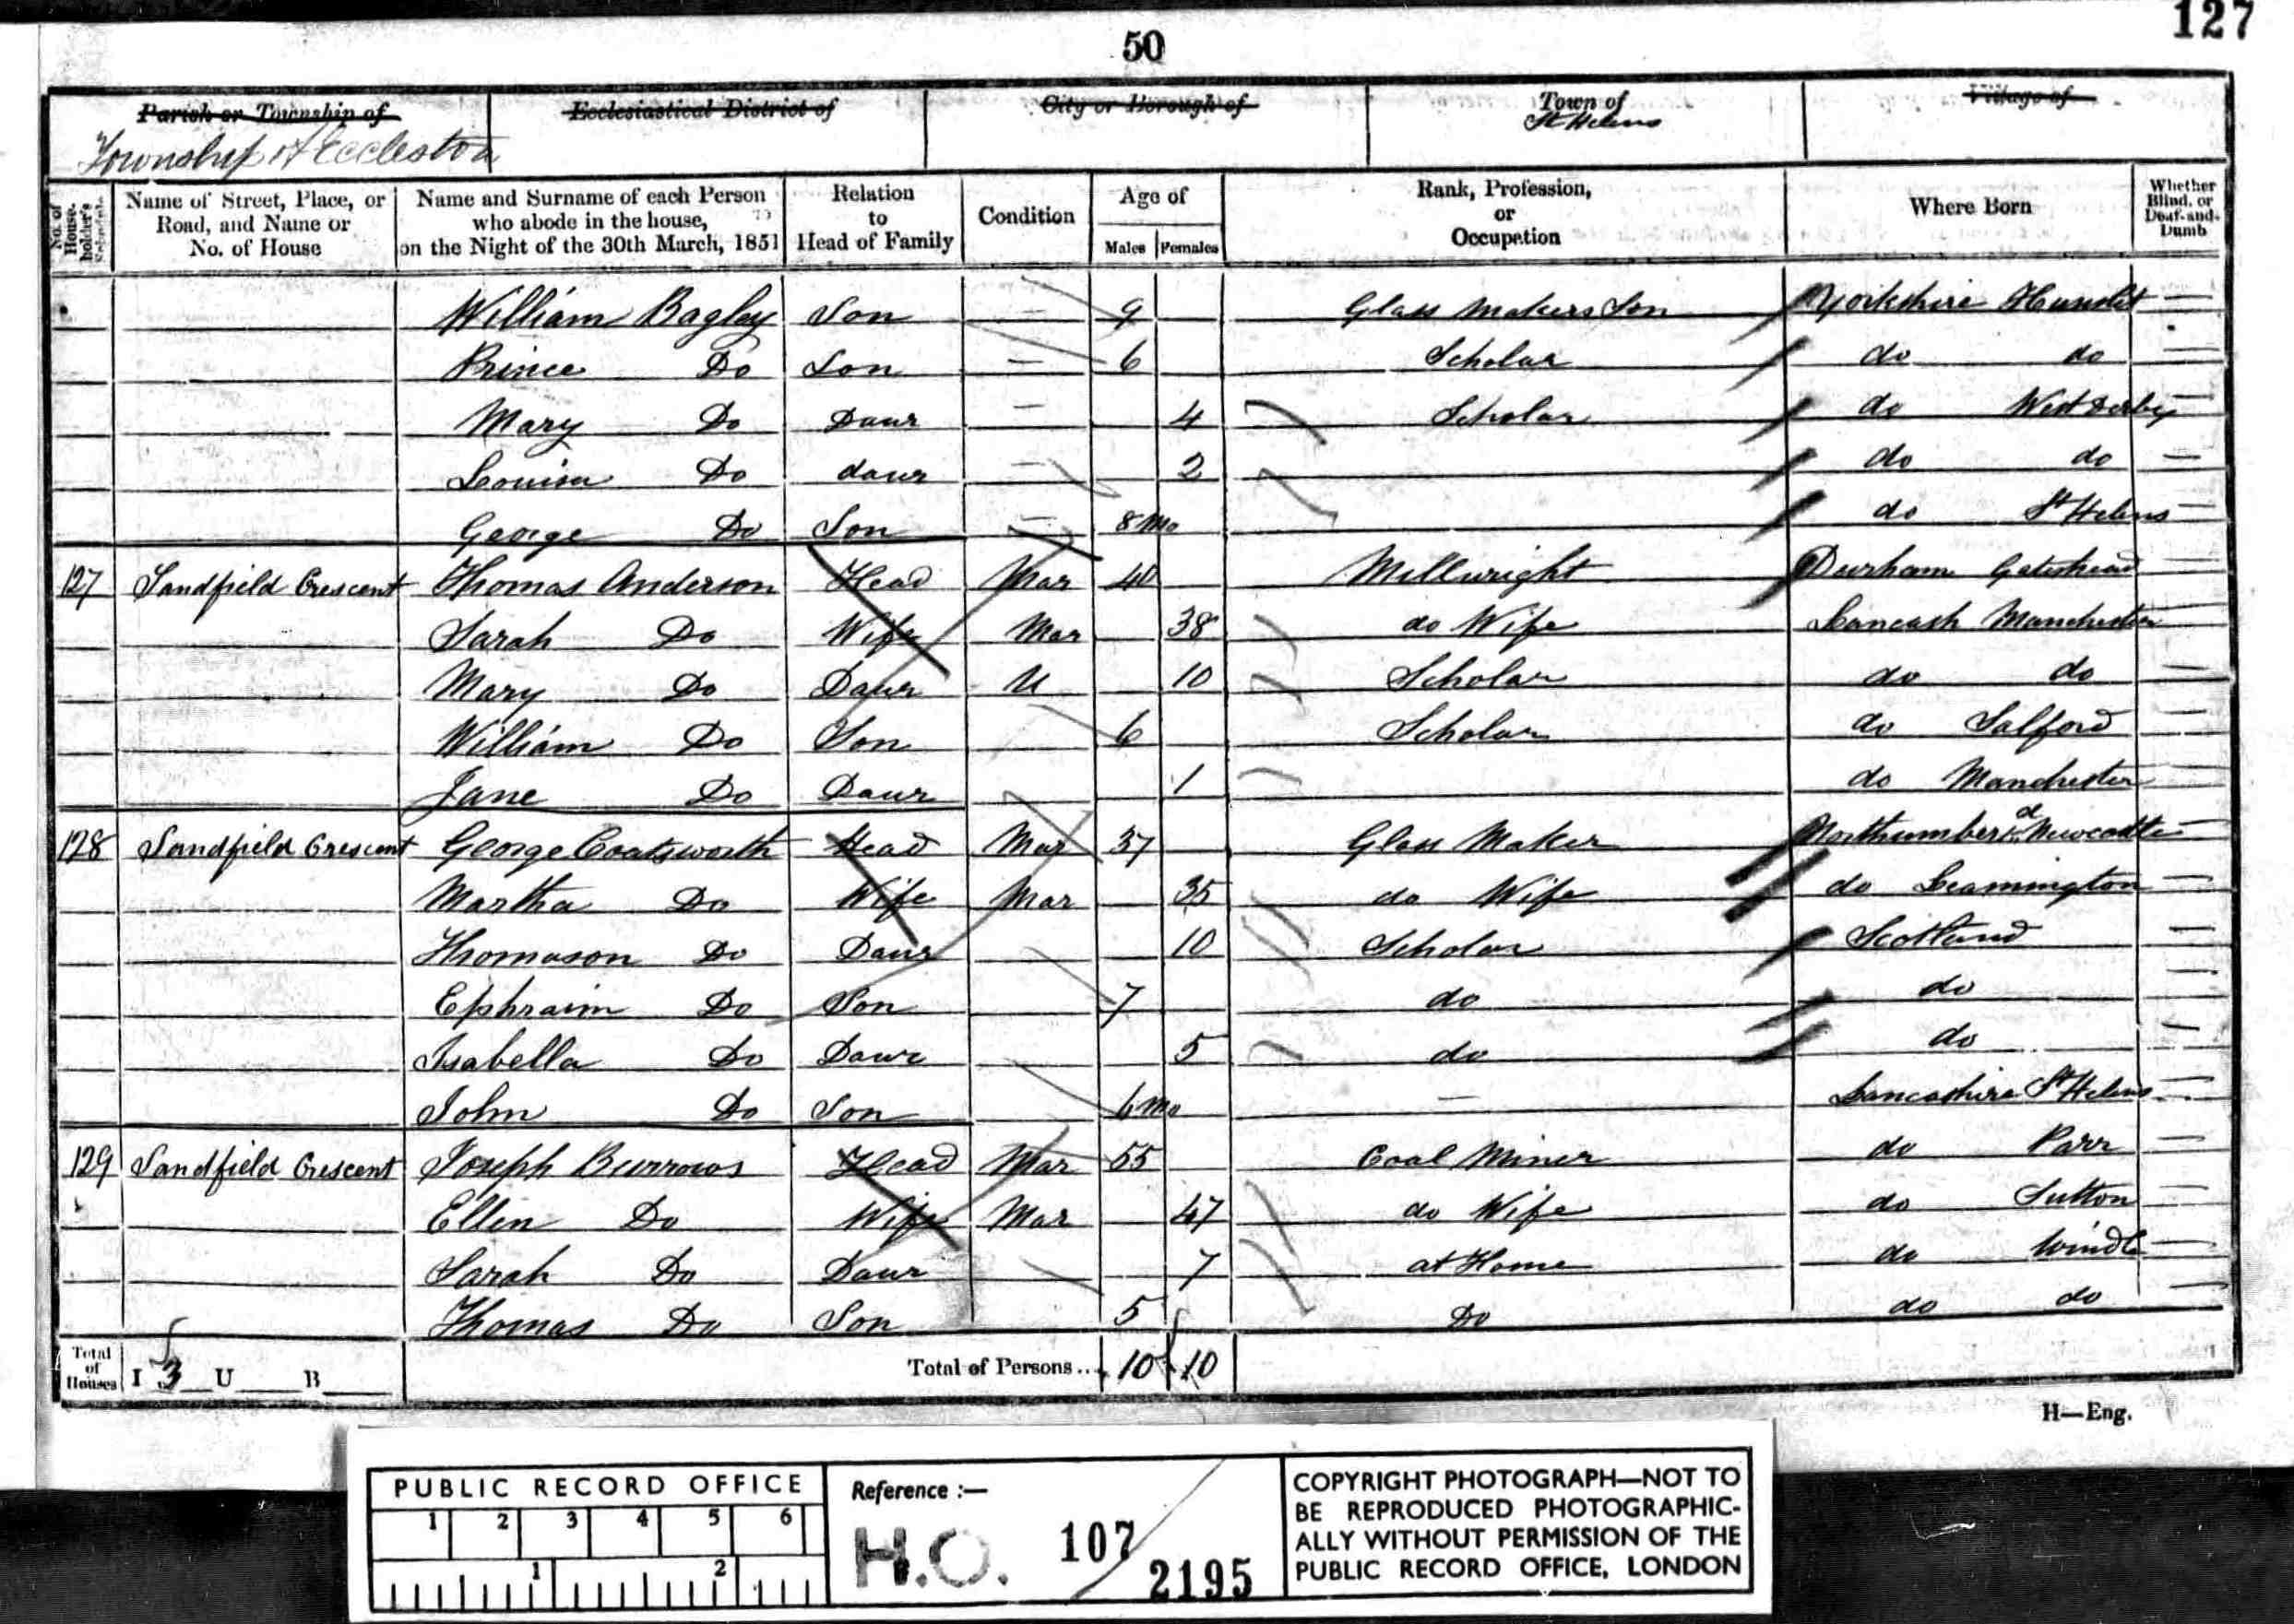 127
50
Parish or Township of Ecclesiastical District of City or Borough of Town of Village of
Township of Eccleston St Helens
No. of House-holder's Schedule Name of Street, Place, or Road, and Name or No. of House Name and Surname of each Person who abode in the house, on the Night of the 30th March, 1851 Relation to Head of Family Condition Age of Males Females Rank, Profession, or Occupation Where Born Whether Blind, or Deaf-and-Dumb
William Bagley Son — 9 Glass Makers Son Yorkshire Hunslet —
Prince Do Son — 6 Scholar do do —
Mary Do Daur — 4 Scholar do West Derby —
Louisa Do daur — 2 do do —
George Do Son — 8 Mo do St Helens —
127 Sandfield Crescent Thomas Anderson Head Mar 40 Millwright Durham Gateshead —
Sarah Do Wife Mar 38 do Wife Lancash Manchester —
Mary Do Daur U 10 Scholar do do —
William Do Son 6 Scholar do Salford —
Jane Do Daur 1 do Manchester —
128 Sandfield Crescent George Coatsworth Head Mar 37 Glass Maker Northumberld Newcastle —
Martha Do Wife Mar 35 do Wife do Leamington —
Thomason Do Daur 10 Scholar Scotland —
Ephraim Do Son 7 do do —
Isabella Do Daur 5 do do —
John Do Son 6 Mo — Lancashire St Helens —
129 Sandfield Crescent Joseph Burrows Head Mar 55 Coal Miner do Parr —
Ellen Do Wife Mar 47 do Wife do Sutton —
Sarah Do Daur 7 at Home do Windle —
Thomas Do Son 5 Do do do —
Total of Houses I 3 U B Total of Persons... 10 10
H—Eng.
PUBLIC RECORD OFFICE
1 2 3 4 5 6
1 2
Reference :—
H.O. 107/2195
COPYRIGHT PHOTOGRAPH—NOT TO
BE REPRODUCED PHOTOGRAPHIC-
ALLY WITHOUT PERMISSION OF THE
PUBLIC RECORD OFFICE, LONDON